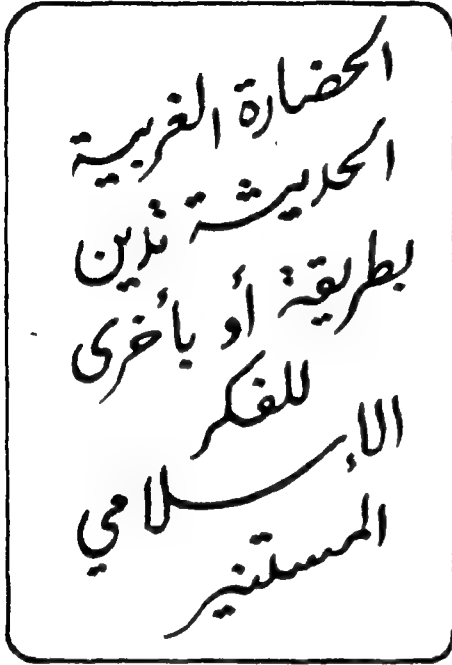 الحضارة الغربية
الحديثة تدين
بطريقة أو بأخرى
للفكر
الإسلامي
المستنير